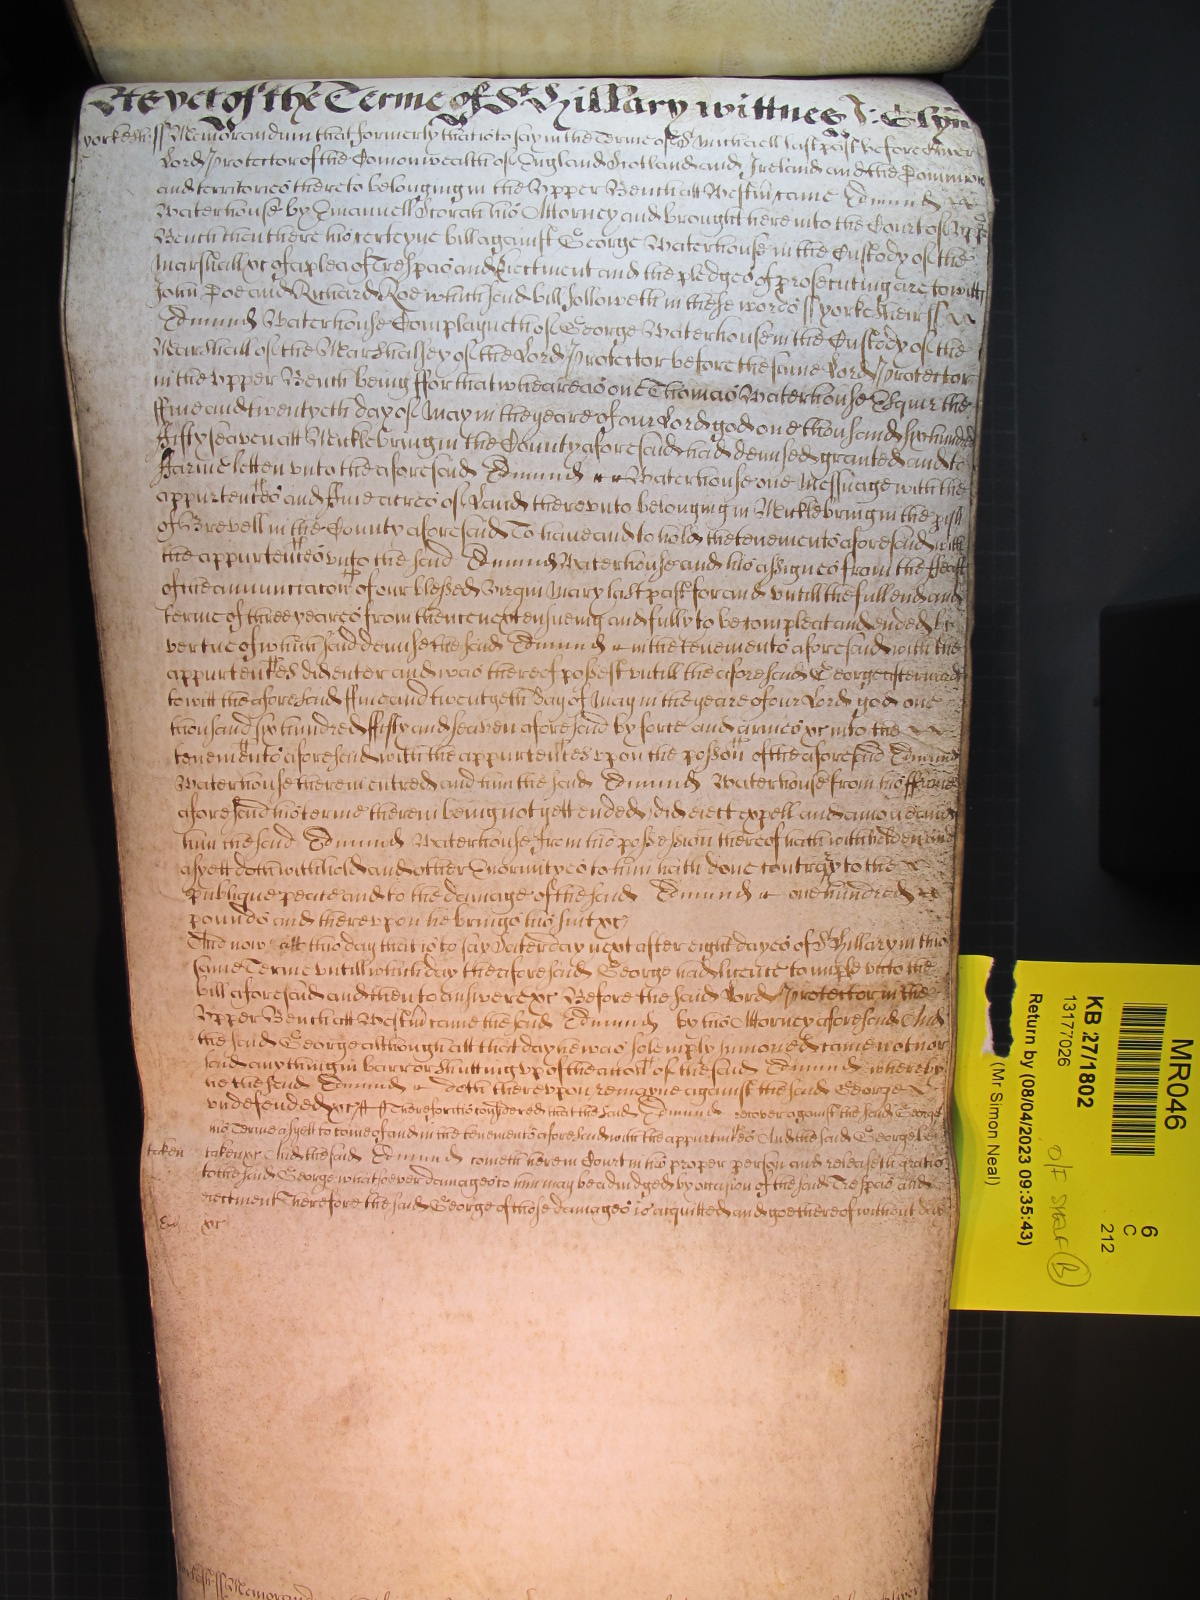 Yet yet of the Terme of St Hillary wittnes J: Glyn
yorkeshr: ss Memorandum that formerly that is to say in the Terme of St Michaell last past before Oliver
Lord Protector of the Comonwealth of England Scotland and Ireland and the Dominions
and territories thereto belonging in the Upper Bench att Westm̄ came Edmund
Waterhouse by Emanuell Scorah his Attorney and brought here into the Court of Upper
Bench then there his certeyne bill against George Waterhouse in the Custody of the
Marshall &c of a plea of Trespas and Eiectment and the pledges of prosecuting are to witt
John Doe and Richard Roe which said bill followeth in these wordes ss yorkesheir ss
Edmund Waterhouse Complayneth of George Waterhouse in the Custody of the
Marshall of the Marshalsey of the Lord Protector before the same Lord Protector
in the Upper Bench being ffor that wheareas one Thomas Waterhouse Esquir the
ffive and twentyeth day of May in the yeare of our Lord god one thousand six hundred
fifty seaven att Micklebring in the County aforesaid had demised granted and to
Farme letten unto the aforesaid Edmund Waterhouse one Messuage with the
appurtenñces and ffive acres of Land thereunto belonging in Micklebring in the pish
of Brewell in the County aforesaid To have and to hold the tenements aforesaid with
the appurtenñces unto the said Edmund Waterhouse and his assignes from the ffeast
of the annunciatoñ of our blessed Virgin Mary last past for and untill the full end and
terme of three yeares from thence next ensueing and fully to be compleat and ended by
vertue of which said demise the said Edmund in the tenements aforesaid with the
appurtenñces did enter and was thereof possest untill the aforesaid George afterwards
to witt the aforesaid ffive and twentyeth day of May in the yeare of our Lord god one
thousand six hundred ffifty and seaven aforesaid by force and armes &c into the
tenements aforesaid with the appurtenñces upon the possōn of the aforesaid Edmund
Waterhouse therein entred and him the said Edmund Waterhouse from his ffarme
aforesaid his terme therein being not yett ended did eiect expell and amove and
him the said Edmund Waterhouse from his possession thereof hath withholden and
as yett doth withhold and other Enormityes to him hath done contrary to the
publique peace and to the damage of the said Edmund one hundred
pounds and thereupon he brings his suit &c
And now att this day that is to say Saterday next after eight dayes of St Hillary in this
same Terme untill which day the aforesaid George had licence to imple unto the
bill aforesaid and then to answer &c Before the said Lord Protector in the
Upper Bench att Westm̄ came the said Edmund by his Attorney aforesaid And
the said George although att that day he was solemply sumoned came not nor
said any thing in barr or shutting up of the actoñ of the said Edmund whereby
he the said Edmund doth thereupon remayne against the said George
undefended &c Therefore itt is considered that the said Edmund recover against the said George
his Terme as yett to come of and in the tenements aforesaid with the appurtenñces And the said George bee
taken taken &c And the said Edmund cometh here in Court in his proper person and releaseth gratis
to the said George whatsoever damages to him may be adiudged by occasion of the said Trespas and
eiectment Therefore the said George of those damages is acquitted and goe thereof without day
&c
MR046
KB 27/1802
13177026
6
C
212
O/F SHELF B
Return by (08/04/2023 09:35:43)
(Mr Simon Neal)